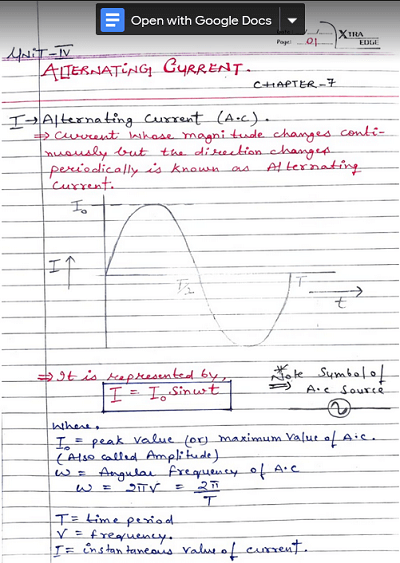 Open with Google Docs
Page: 01
XTRA
EDGE
UNIT-IV
ALTERNATING CURRENT.
CHAPTER-7
I → Alternating Current (A.C).
⇒ Current whose magnitude changes conti-
nuously but the direction changes
periodically is known as Alternating
Current.
I₀
I ↑
T/2
T
t
⇒ It is represented by,
I = I₀ sinωt
* Note Symbol of
⇒ A.C Source
Where,
I₀ = peak value (or) maximum value of A.C.
(Also called Amplitude)
ω = Angular frequency of A.C
ω = 2πν = 2π/T
T = time period
ν = frequency.
I = instantaneous value of current.